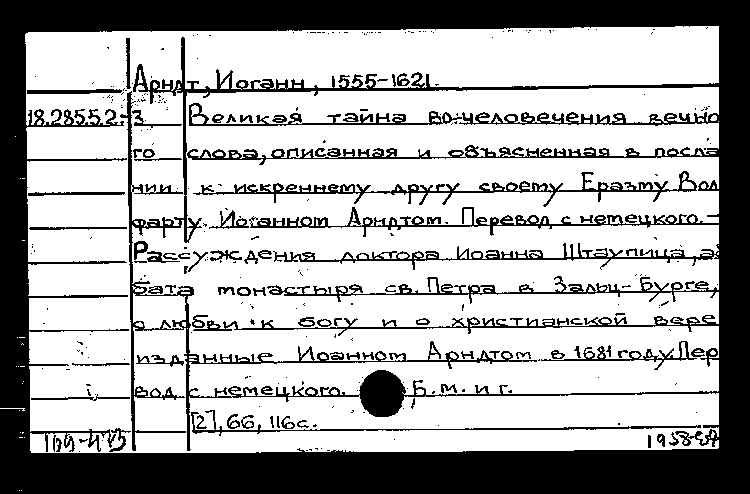 Арндт, Иоганн, 1555-1621.
18.285.5.2.-3 Великая тайна во-человечения вечно
го слова, описанная и объясненная в посла
нии к искреннему другу своему Еразму Вол
фарту Иоганном Арндтом. Перевод с немецкого.-
Рассуждения доктора Иоанна Штаупица, аб
бата монастыря св. Петра в Зальц-Бурге,
о любви к богу и о христианской вере
изданные Иоанном Арндтом в 1681 году. Пер
вод с немецкого. Б.м. и г.
[2], 66, 116с.